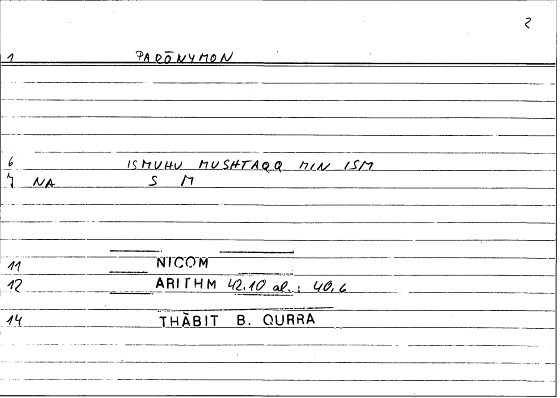 2
1 PARŌNYMON
6 ISMUHU MUSHTAQQ MIN ISM
7 NA S M
11 NICOM
12 ARITHM 42.10 al.: 40.6
14 THĀBIT B. QURRA